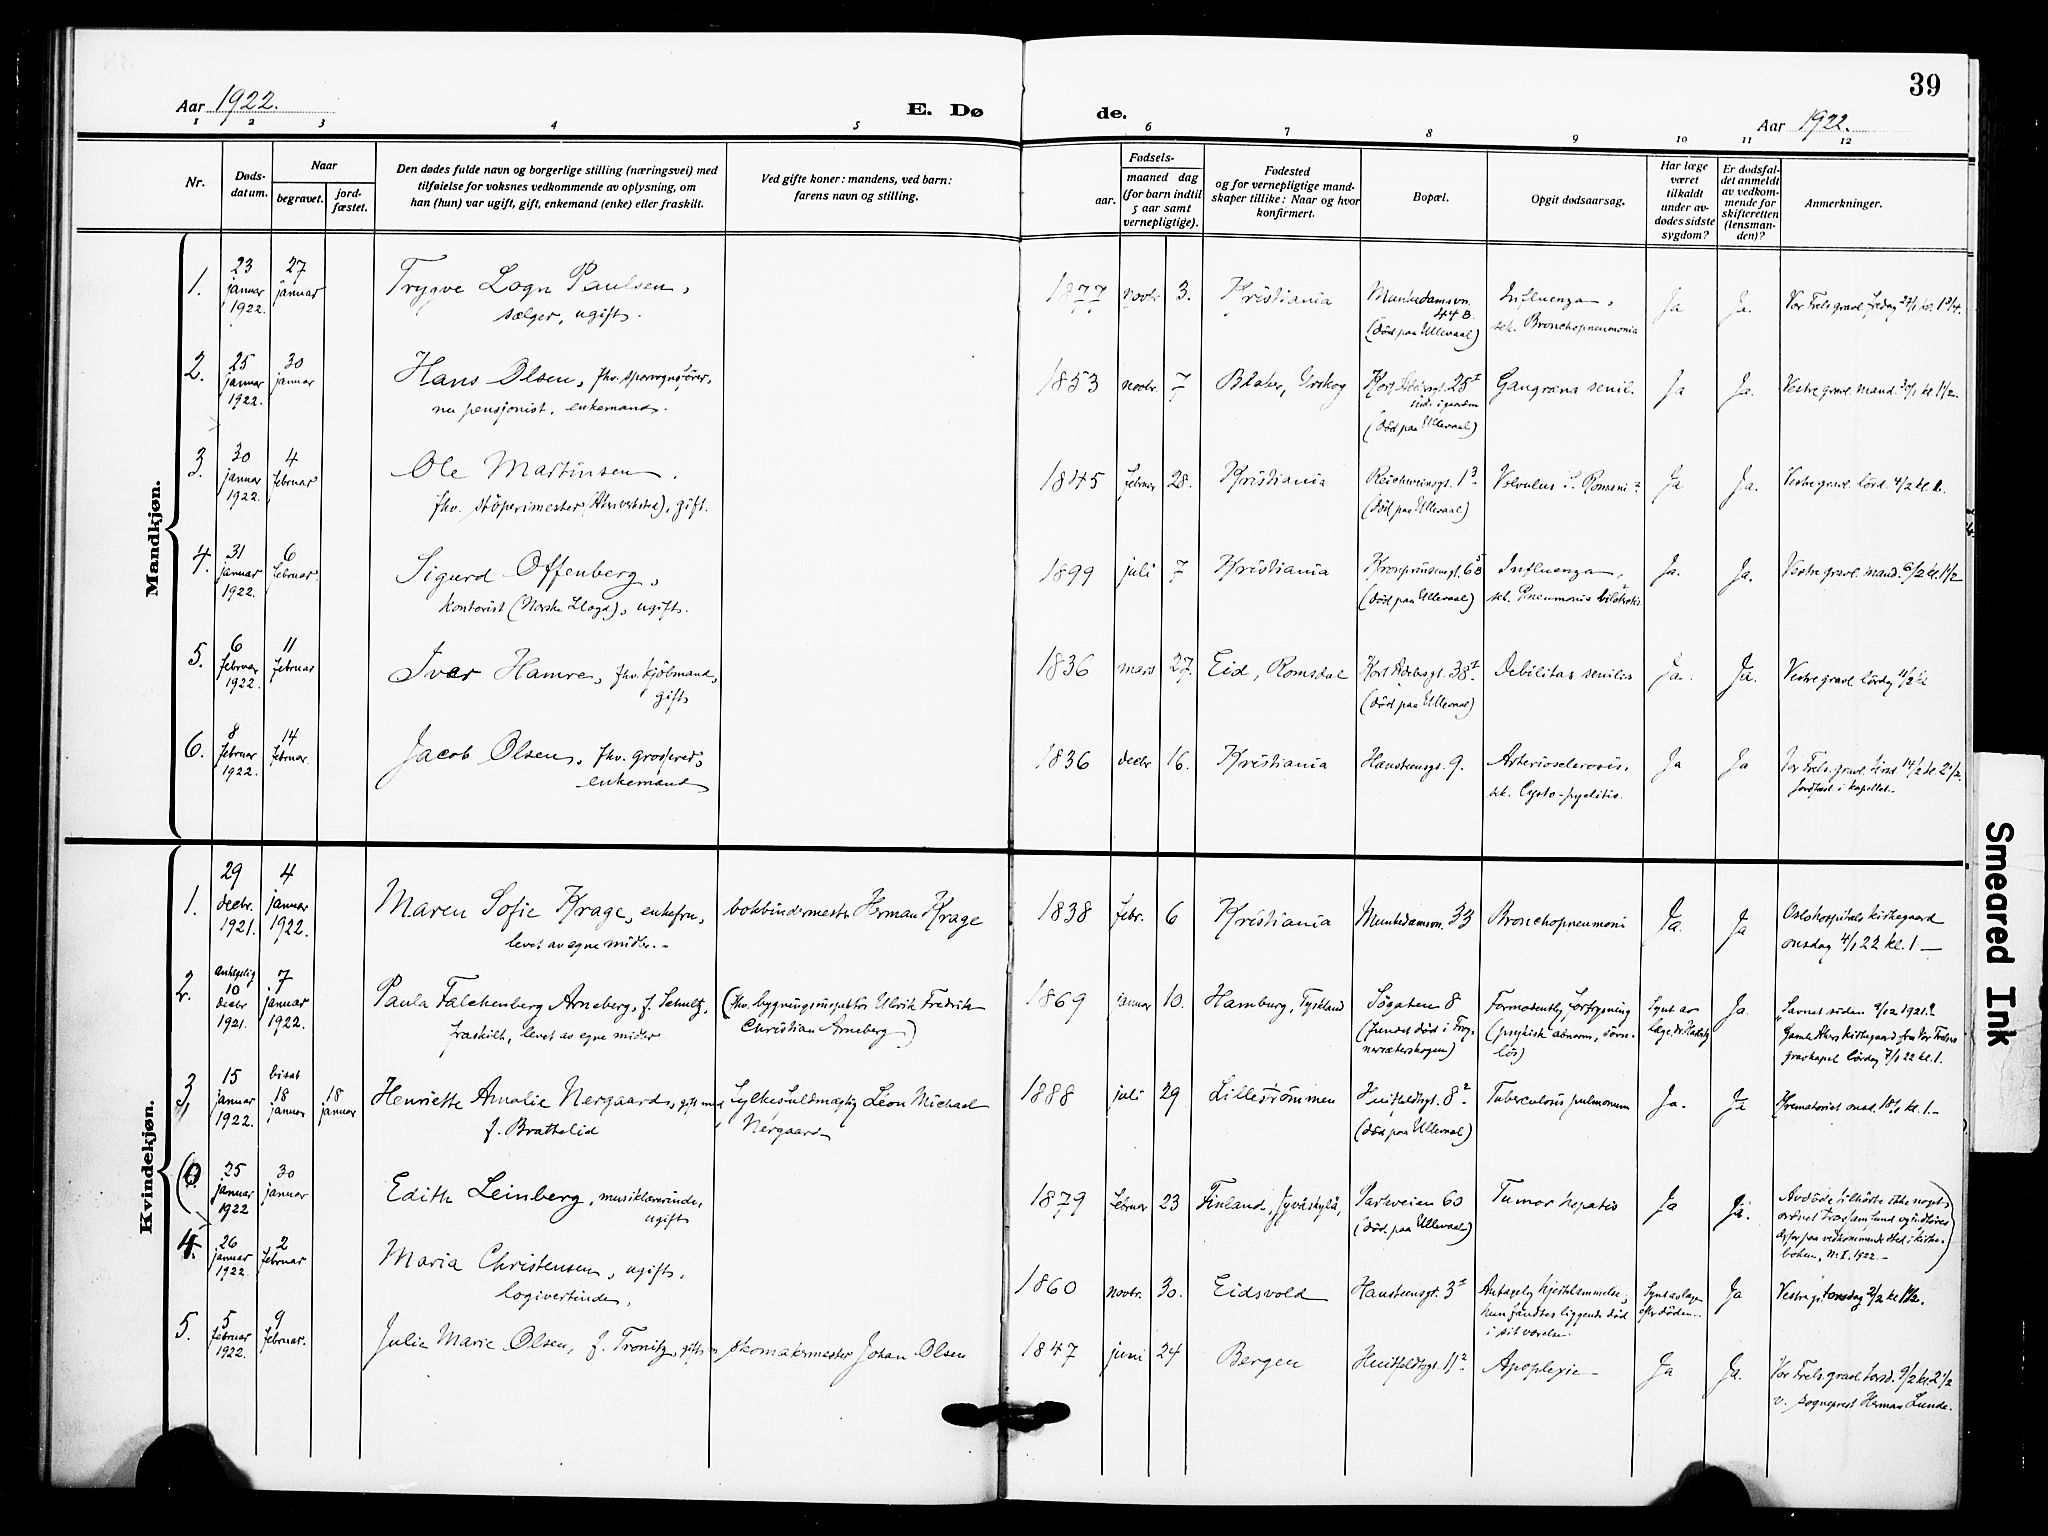 39
Aar 1922.
E. Døde.
Aar 1922.
1 2 3 4 5 6 7 8 9 10 11 12
Nr.
Døds-
datum.
Naar
begravet.
jord-
fæstet.
Den dødes fulde navn og borgerlige stilling (næringsvei) med
tilføielse for voksnes vedkommende av oplysning, om
han (hun) var ugift, gift, enkemand (enke) eller fraskilt.
Ved gifte koner: mandens, ved barn:
farens navn og stilling.
Fødsels-
aar.
maaned dag
(for barn indtil
5 aar samt
vernepligtige).
Fødested
og for vernepligtige mand-
skaper tillike: Naar og hvor
konfirmert.
Bopæl.
Opgit dødsaarsag.
Har læge
været
tilkaldt
under av-
dødes sidste
sygdom?
Er dødsfal-
det anmeldt
av vedkom-
mende for
skifteretten
(lensman-
den)?
Anmerkninger.
Mandkjøn.
1.
23
januar
1922.
27
januar
Trygve Logn Paulsen,
sælger, ugift.
1877 novbr 3.
Kristiania
Munkedamsvn.
44 B.
(død paa Ullevaal)
Influenza,
sek. Bronchopneumonia
Ja
Ja.
Vor Frels. gravl. fredag 27/1 kl. 1 3/4.
2.
25
januar
1922.
30
januar
Hans Olsen, fhv. sporvognsfører,
nu pensjonist, enkemand.
1853 novbr. 7
Blaker, Urskog
Kort Adelersgt. 25 I
(død paa Ullevaal)
Gangræna senil.
Ja
Ja.
Vestre gravl. mand. 30/1 kl. 1 1/2.
3.
30
januar
1922.
4
februar
Ole Martinsen.
fhv. støperimester (Akers verksted), gift.
1845 februar 28.
Kristiania
Reichweinsgt. 1 3.
(død paa Ullevaal)
Volvulus S. Romani
Ja
Ja.
Vestre gravl. lörd. 4/2 kl. 1.
4.
31
januar
1922.
6
februar.
Sigurd Offenberg,
kontorist (Norske Lloyd), ugift.
1899 juli 7
Kristiania
Kronprinsensgt. 6 B
(død paa Ullevaal)
Influenza,
sek. Pneumonia bilateralis
Ja.
Ja.
Vestre gravl. mand. 6/2 kl. 1 1/2
5.
6
februar
1922.
11
februar
Iver Hamre, fhv. kjølmand,
gift
1836 mars 27.
Eid, Romsdal
Kort Adelersgt. 38 I.
(død paa Ullevaal)
Debilitas senilis
Ja.
Ja.
Vestre gravl. lördag 11/2 kl
6.
8
februar
1922.
14
februar.
Jacob Olsen, fhv. grosserer,
enkemand
1836 decbr 16.
Kristiania
Hansteensgt. 9.
Arteriosclerosis,
sek. Cysto-pyelitis.
Ja
Ja
Vor Frels. gravl. tirsd. 14/2 kl. 2 1/2.
Jordfæst i kapellet.
Kvindekjøn.
1.
29
decbr.
1921.
4
januar
1922.
Maren Sofie Krage, enkefru,
levet av egne midler.
bokbindermester Herman Krage
1838 febr. 6
Kristiania
Munkedamsvn. 33
Bronchopneumoni
Ja.
Ja
Oslo hospitals kirkegaard
onsdag 4/1 22 kl. 1 —
2.
antagelig
10
decbr
1921.
7
januar
1922.
Paula Falckenberg Arneberg, f. Schultz,
fraskilt, levet av egne midler
(fhv. bygningsinspektör Ulrik Fredrik
Christian Arneberg)
1869 januar 10.
Hamburg, Tyskland
Søgaten 8
(fundet død i Frog-
nersæterskogen)
Formodentlig forfrysning
(psykisk abnorm, søvn-
løs)
Synt av
læge
Ja.
Savnet siden 9/12 1921.
Gamle Akers kirkegaard fra Vor Frelsers
gravkapel lördag 7/1 22 kl. 1.
3.
15
januar
1922.
bisat
18
januar
18
januar
Henriette Amalie Nergaard, gift med
f. Brattelid
fylkesfuldmægtig Leon Michael
Nergaard
1888 juli 29
Lillestrømmen
Huitfeldtsgt. 8 2.
(død paa Ullevaal)
Tuberculosis pulmonum
Ja.
Ja
Krematoriet onsd. 18/1 kl. 1 —
(0.
25
januar
1922
30
januar
Edith Leinberg, musiklærerinde,
ugift
1879 februar 23
Finland, Jyväskylä,
Parkveien 60
(død paa Ullevaal)
Tumor hepatis
Ja
Ja.
Avdøde tilhörte ikke noget
ordnet trossamfund og indføres
derfor paa vedkommende sted i kirke-
boken, nr. I, 1922. —)
4.
26
januar
1922.
2
februar
Maria Christensen, ugift,
logivertinde,
1860 novbr. 30.
Eidsvold
Hansteensgt. 3 I
Antagelig hjertelammelse,
hun fandtes liggende død
i sit værelse.
Synt av læge
efter døden.
Ja
Vestre gr. torsdag 2/2 kl. 1 1/2.
5.
5
februar
1922.
9
februar.
Julie Marie Olsen, f. Tronitz, gift m
skomakermester Johan Olsen
1847 juni 24
Bergen
Huitfeldtsgt. 11 2.
Apoplexie —
Ja
Ja.
Vor Frels. gravl. torsd. 9/2 kl. 2 1/2
v. sogneprest Herman Lunde.
Smeared Ink